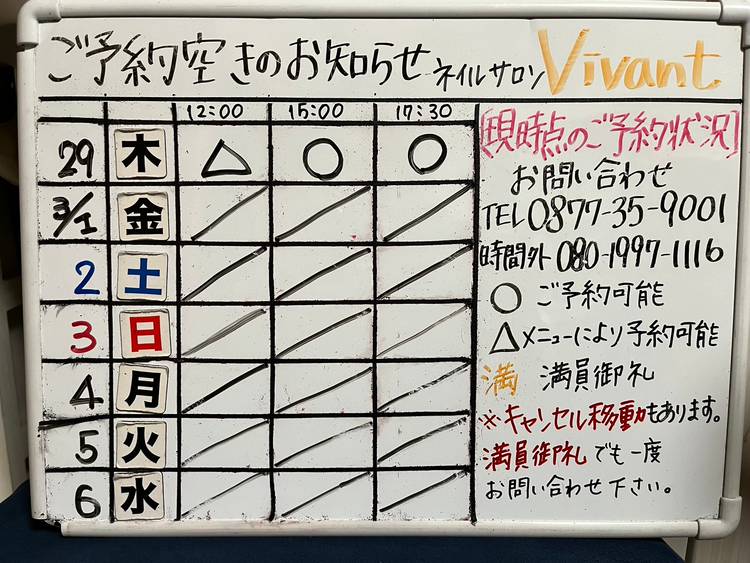 ご予約空きのお知らせ ネイルサロン Vivant
12:00 15:00 17:30
29 木 △ ○ ○
3/1 金
2 土
3 日
4 月
5 火
6 水
[現時点のご予約状況]
お問い合わせ
TEL 0877-35-9001
時間外 080-1997-1116
○ ご予約可能
△ メニューにより予約可能
満 満員御礼
※キャンセル移動もあります。
満員御礼でも一度
お問い合わせ下さい。